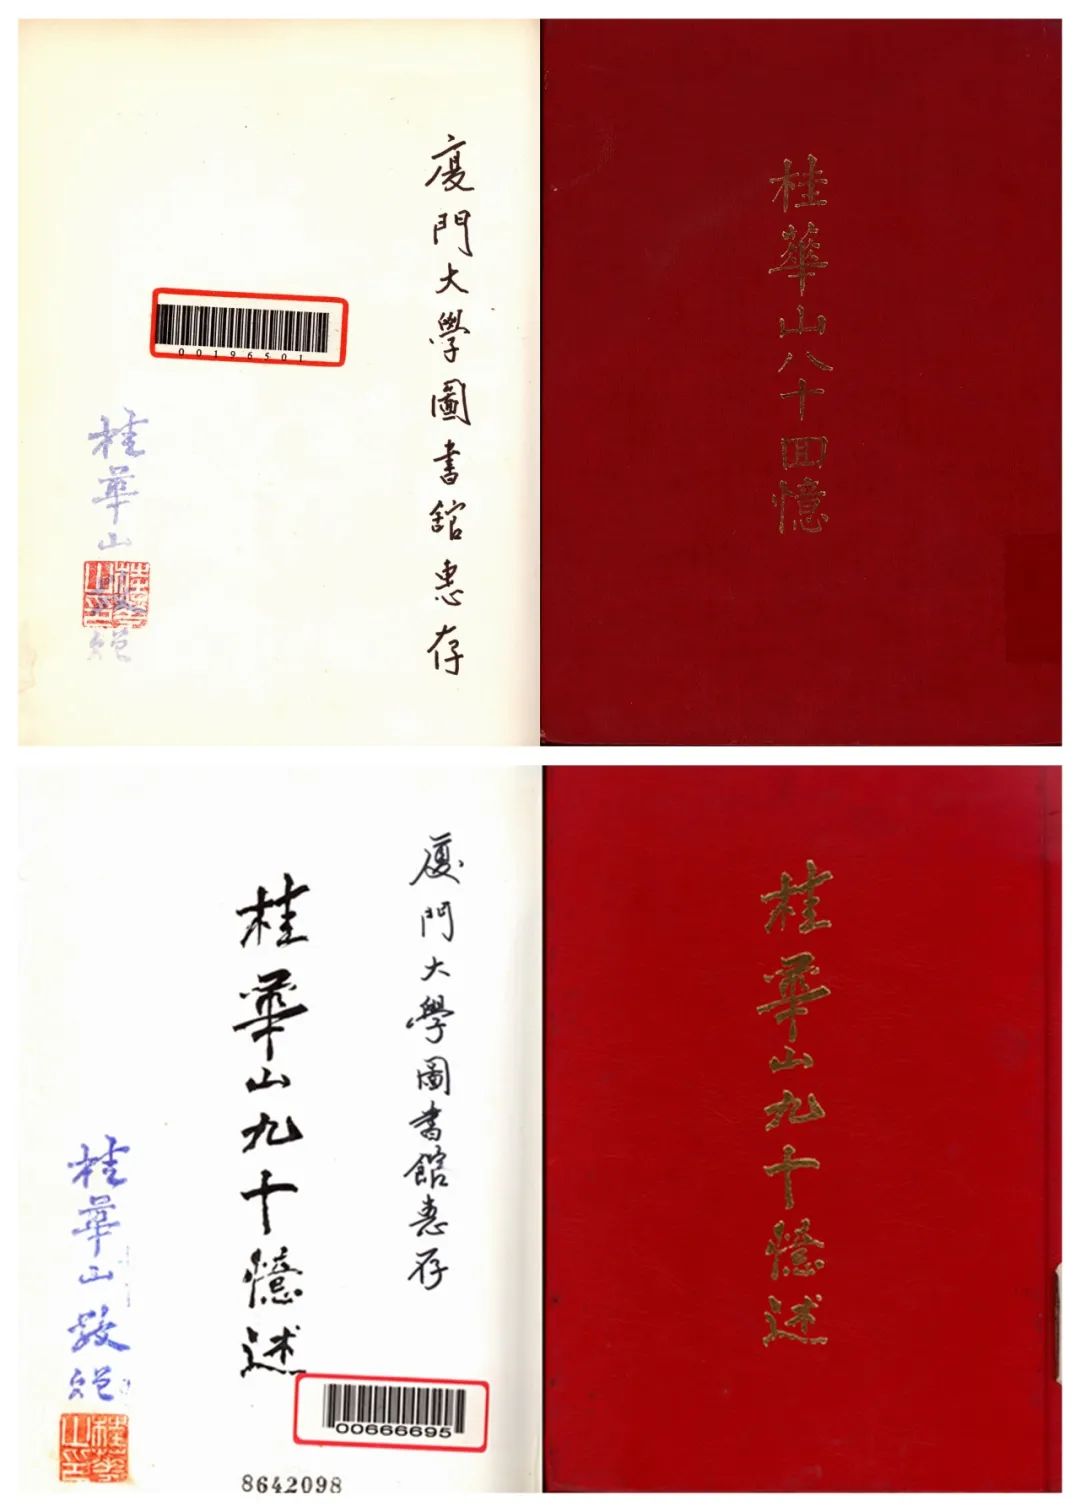 廈門大學圖書館惠存
00196501
桂華山
桂華山印
贈
桂華山八十回憶
廈門大學圖書館惠存
桂華山九十憶述
桂華山敬贈
桂華山印
00666695
8642098
桂華山九十憶述